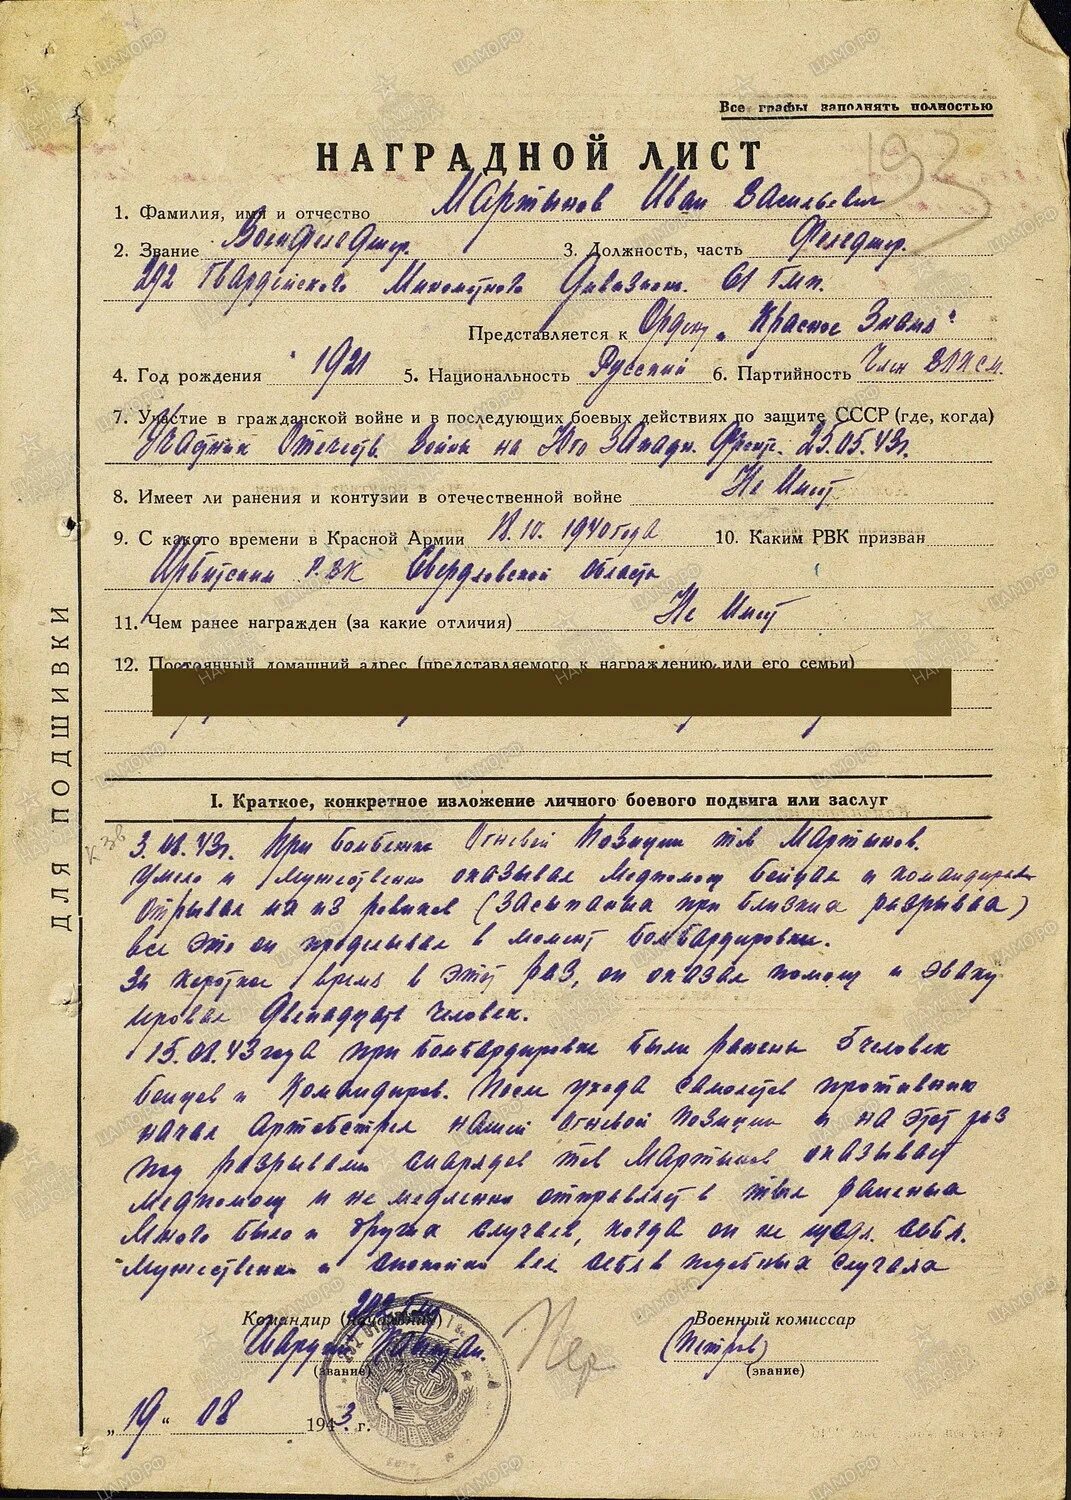 Все графы заполнять полностью
193
НАГРАДНОЙ ЛИСТ
1. Фамилия, имя и отчество Мартынов Иван Васильевич
2. Звание Военфельдшер. 3. Должность, часть Фельдшер.
292 Гвардейского Минометного Дивизион. 61 Гмп.
Представляется к Ордену „Красное Знамя"
4. Год рождения 1921 5. Национальность Русский 6. Партийность Член ВЛКСМ.
7. Участие в гражданской войне и в последующих боевых действиях по защите СССР (где, когда)
Участник Отечеств. Войны на Юго Западн. Фронте. 25.05.43г.
8. Имеет ли ранения и контузии в отечественной войне Не Имеет
9. С какого времени в Красной Армии 18.10.1940 года 10. Каким РВК призван
Ирбитским РВК Свердловской область
11. Чем ранее награжден (за какие отличия) Не Имеет
12. Постоянный домашний адрес (представляемого к награждению или его семьи)
ДЛЯ ПОДШИВКИ
I. Краткое, конкретное изложение личного боевого подвига или заслуг
3.08.43г. При бомбежке Огневой Позиции тов Мартынов.
Умело и Мужественно оказывал Медпомощ бойцам и командирам
Отрывал их из ровиков (Засыпаных при близких разрывах)
все это он проделывал в момент бомбардировки.
За короткое время в этот раз, он оказал помощ и эваку
ировал Двенадцать Человек.
15.08.43 года при бомбардировке были ранены 5 человек
бойцов и Командиров. После ухода самолетов противник
начал Артобстрел нашей огневой позиции и на этот раз
под разрывами снарядов тов Мартынов оказывает
медпомощ и не медленно отправляет в тыл раненых
Много было и других случаев, когда он не щадя. себя.
Мужественно и спокойно вел себя в подобных случаях
Командир (начальник)
Гвардии Капитан.
(звание)
Военный комиссар
(Петров)
(звание)
„19" 08 1943. г.